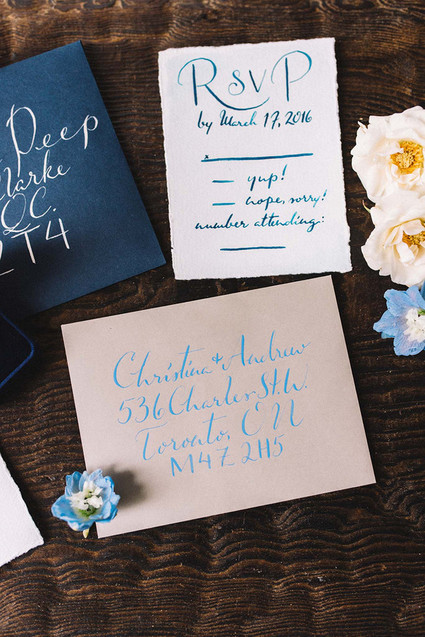 Deep
QC.
RSVP
by March 17, 2016
x
yup!
nope, sorry!
number attending:
Christina + Andrew
536 Charles St. W.
Toronto, ON
M4Z 2H5